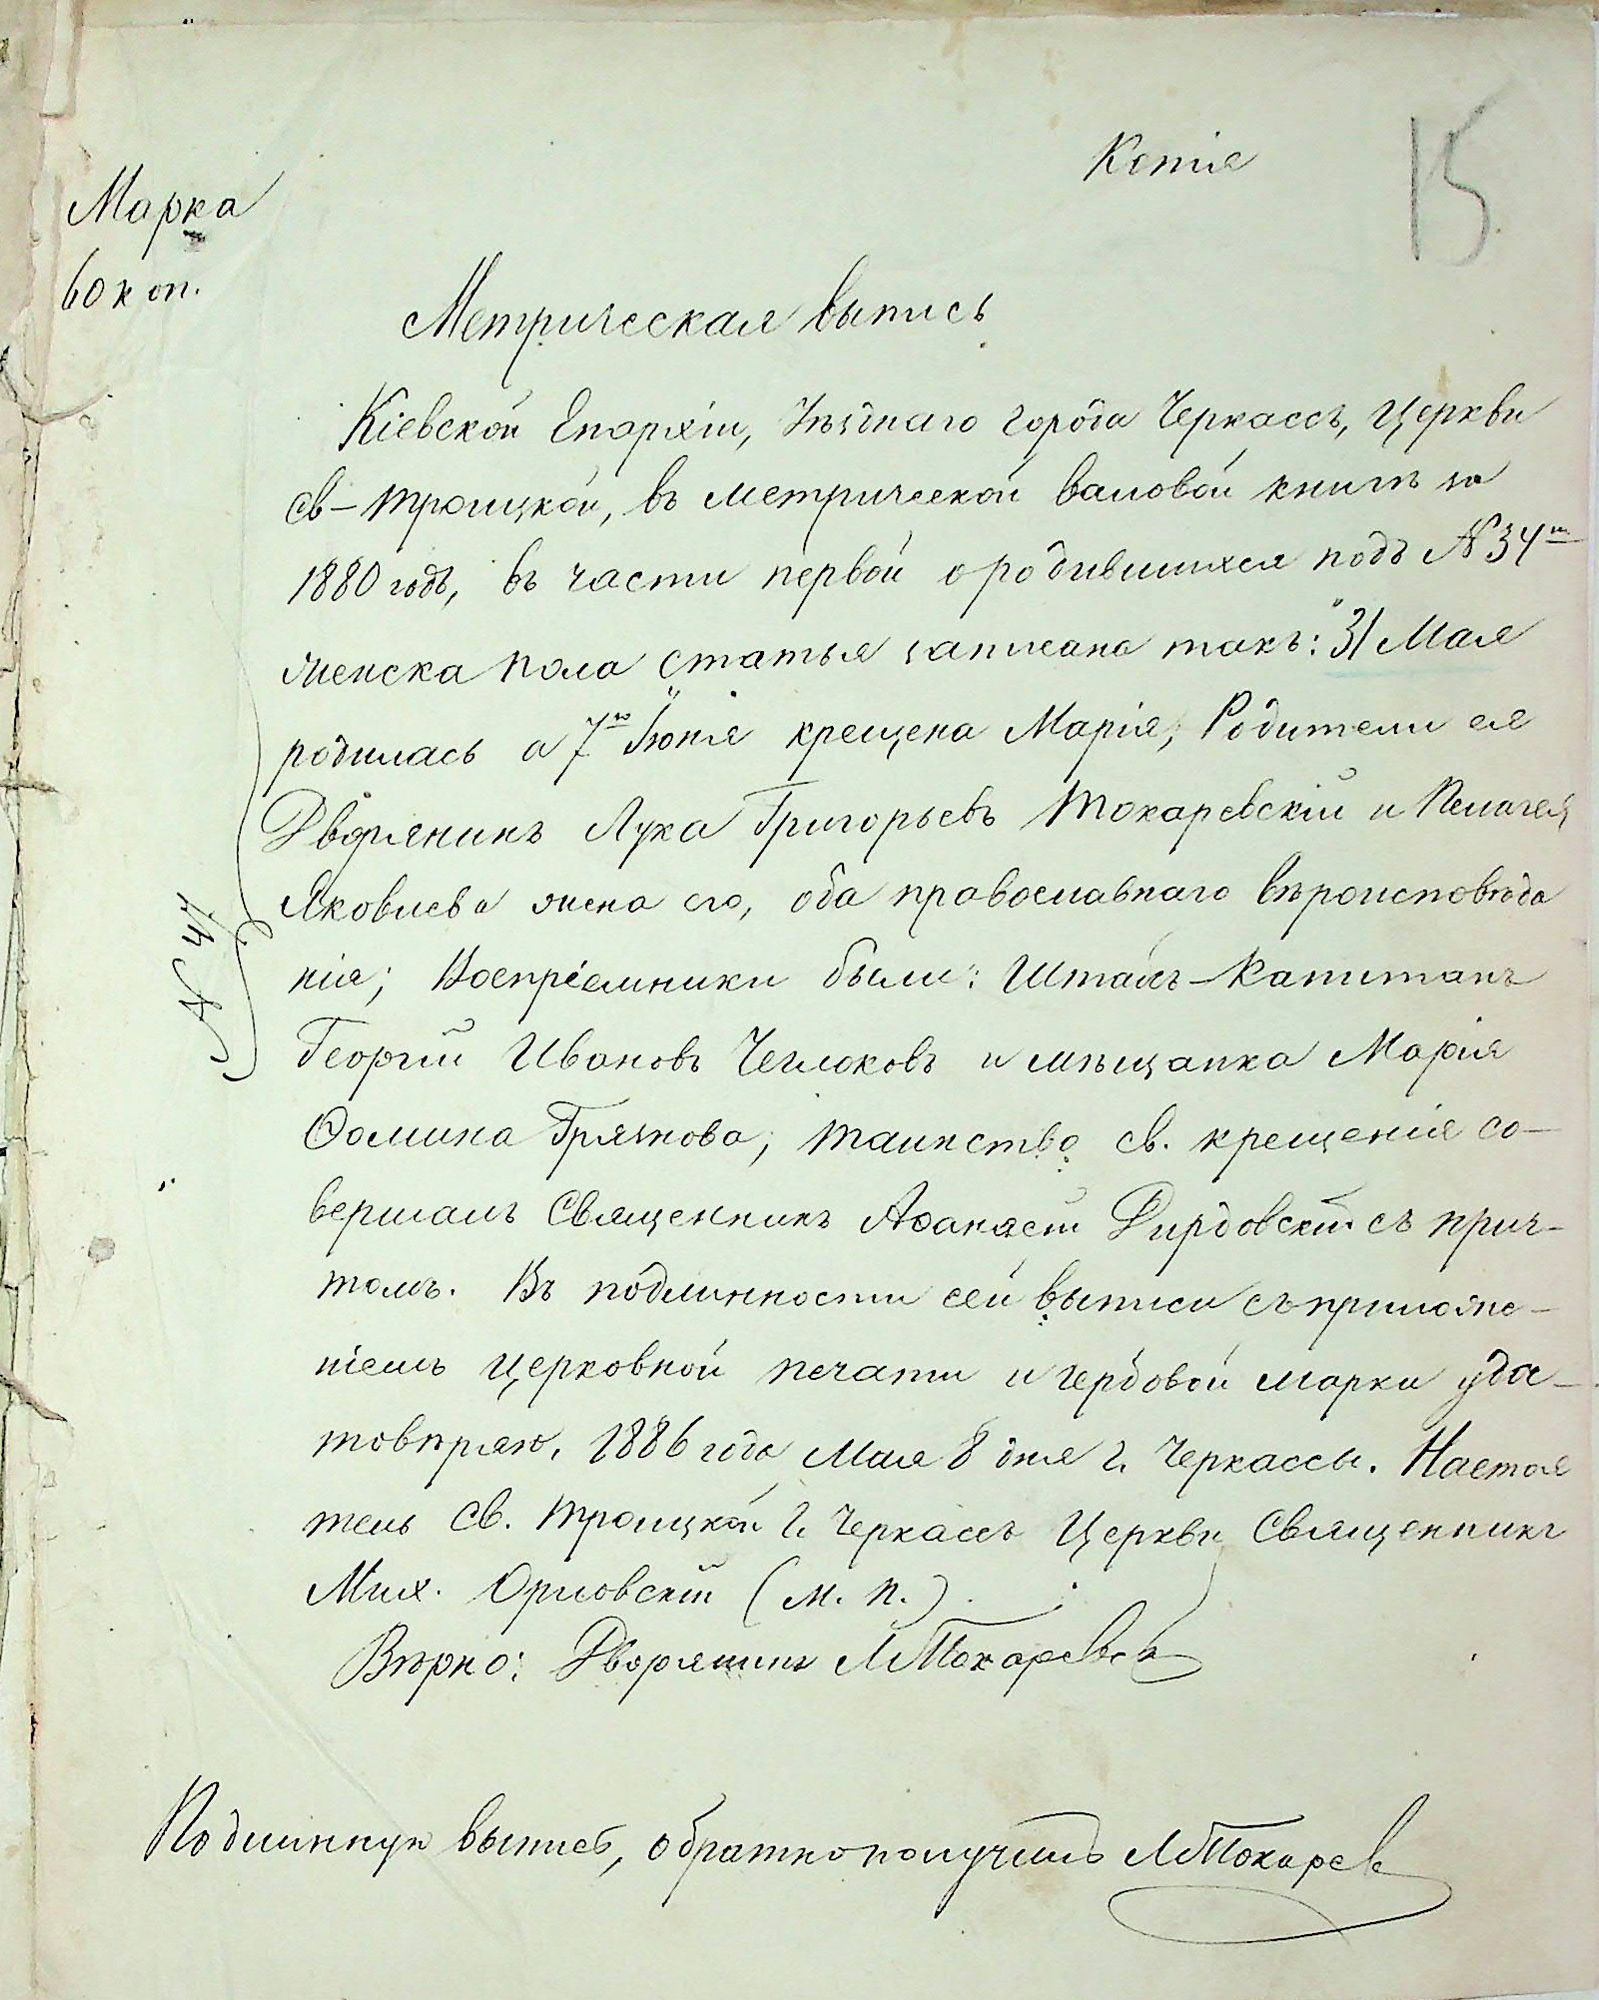 Копія
15
Марка
60 коп.
Метрическая выпись
Кіевской Епархіи, Уѣзднаго города Черкассъ, Церкви
Св-Троицкой, въ метрической валовой книгѣ за
1880 годъ, въ части первой о родившихся подъ № 34м
женска пола статья записана такъ: "31 Мая
родилась а 7го Іюня крещена Марія, Родители ея
Дворянинъ Лука Григорьевъ Токаревскій и Пелагея
Яковлева жена его, оба православнаго вѣроисповѣда
нія; Воспріемники были: Штабъ-Капитанъ
Георгій Ивановъ Чеглоковъ и мѣщанка Марія
Ѳомина Грязнова; таинство св. крещенія со-
вершалъ Священникъ Аѳанасій Дирдовскій съ прич-
томъ. Въ подлинности сей выписи съ приложе-
ніемъ церковной печати и гербовой марки удос-
товѣряю. 1886 года Мая 8 дня г. Черкассы. Настоя
тель Св. Троицкой г. Черкассъ Церкви Священникъ
Мих. Орловскій (М. П.)
Вѣрно: Дворянинъ Л Токаревск
Подлинную выпись, обратно получилъ Л Токарев